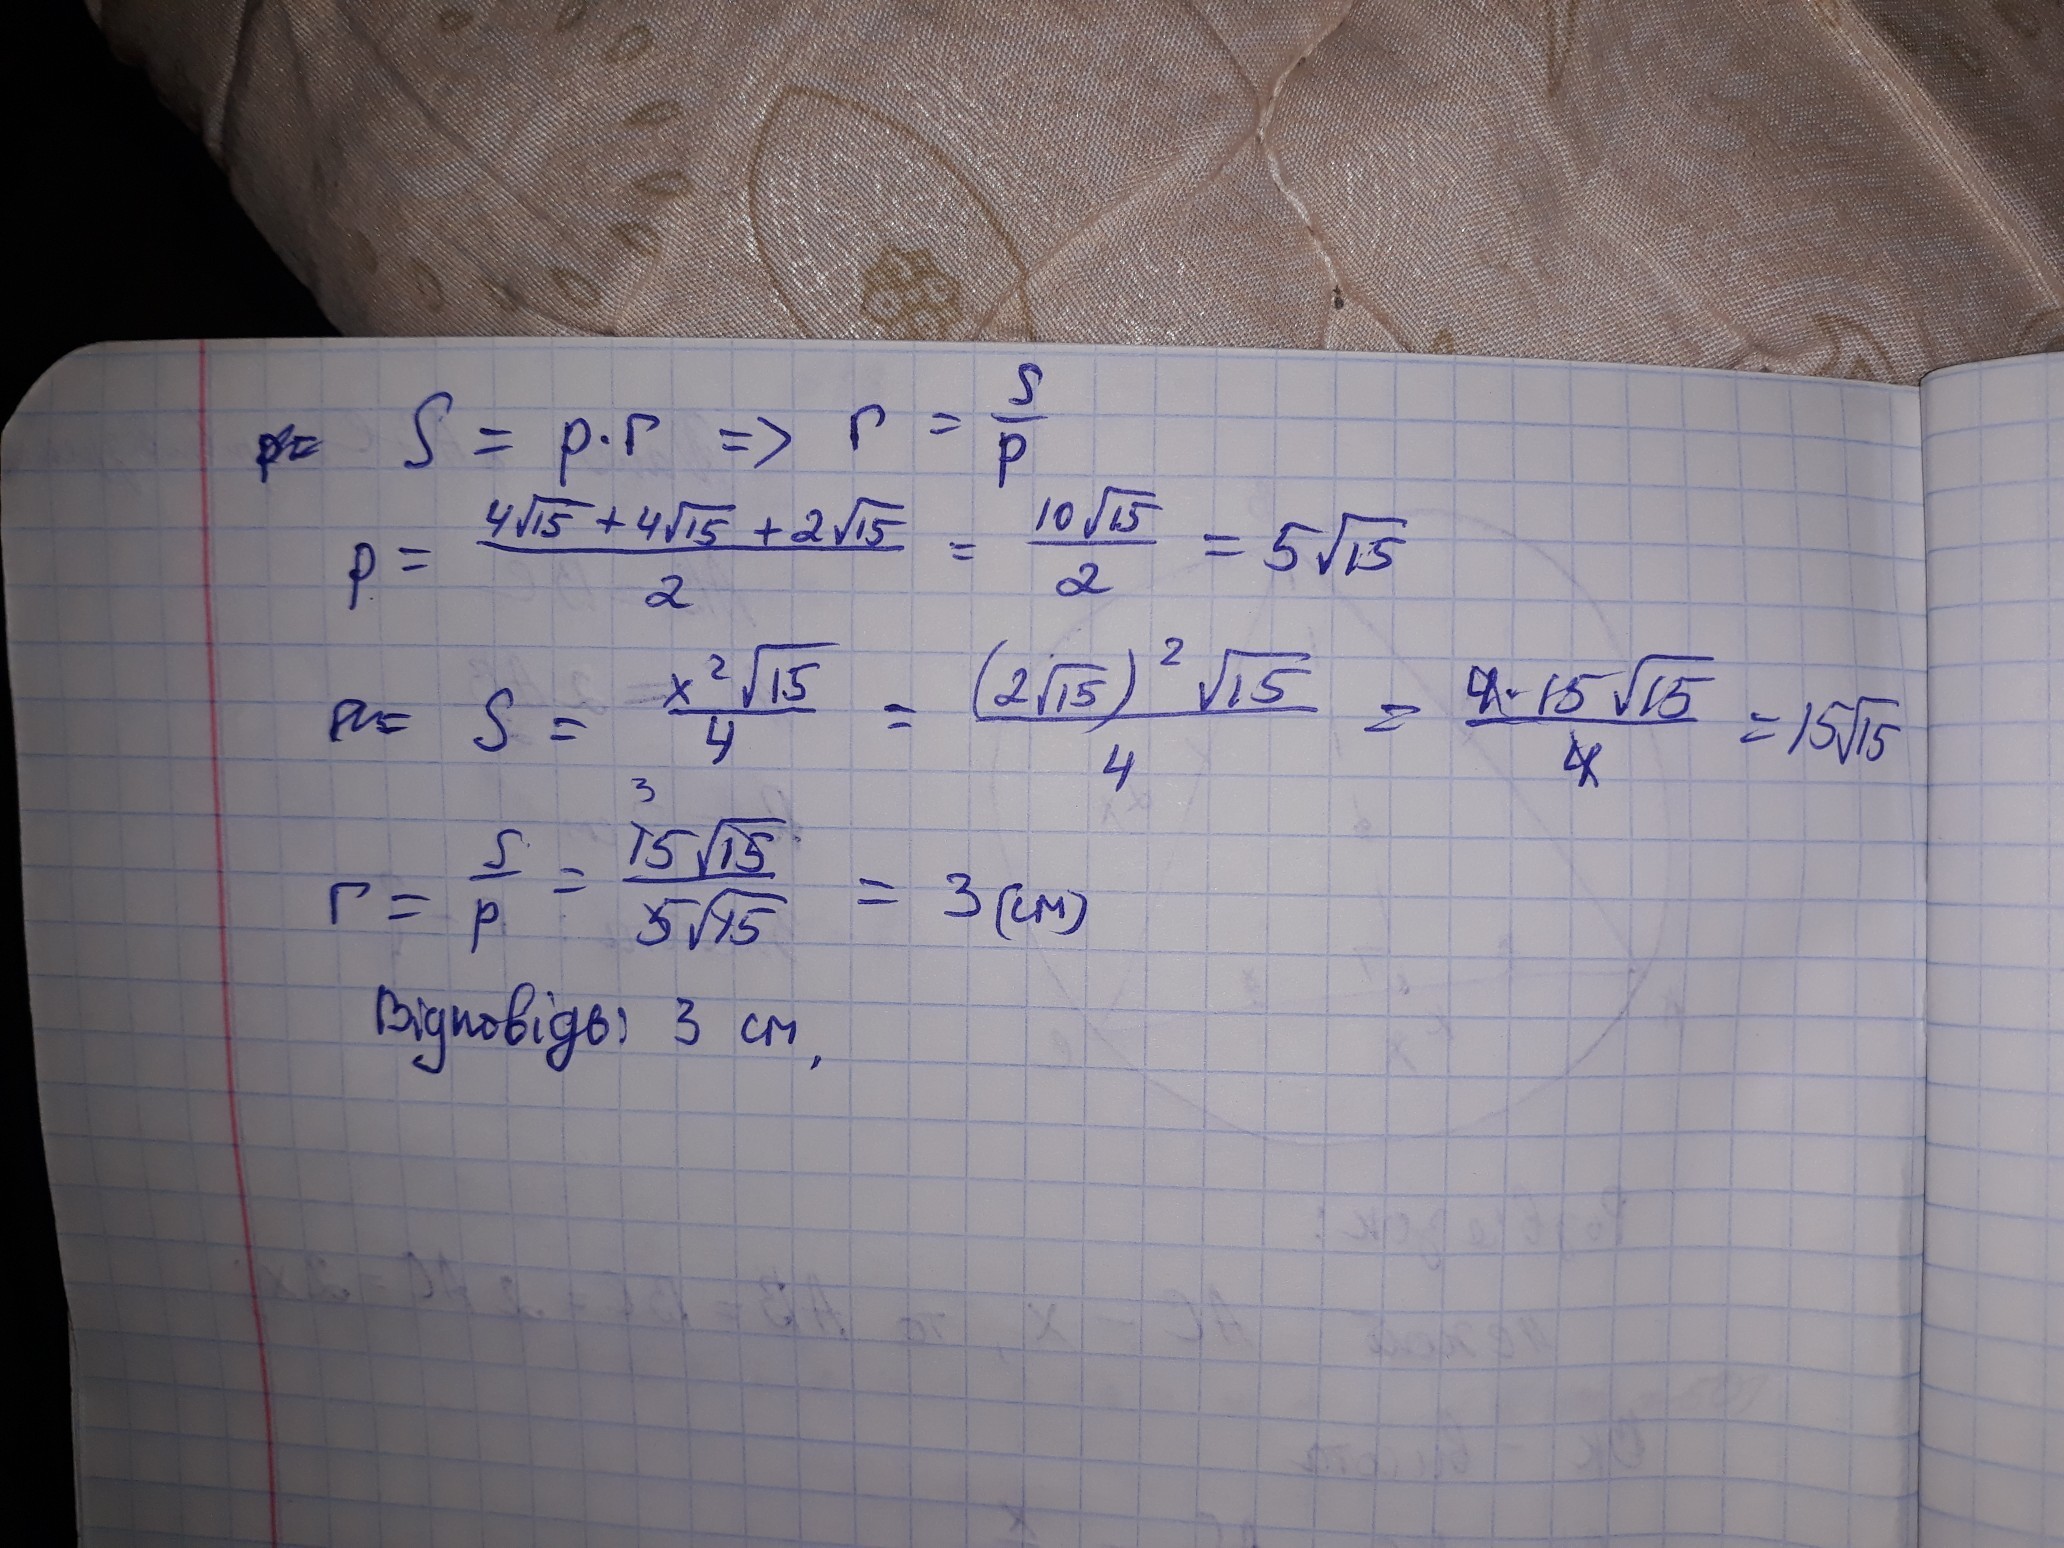 S = p·r => r = S/p
p = (4√15 + 4√15 + 2√15)/2 = 10√15/2 = 5√15
S = x²√15/4 = (2√15)²√15/4 = 4·15√15/4 = 15√15
3
r = S/p = 15√15/5√15 = 3 (см)
Відповідь: 3 см.